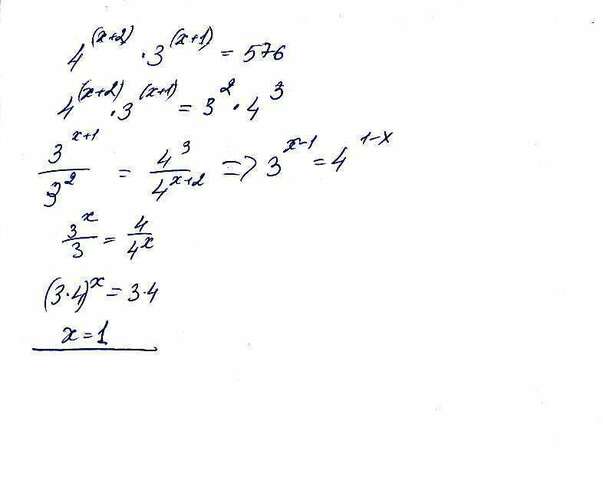 4^(x+2) · 3^(x+1) = 576
4^(x+2) · 3^(x+1) = 3^2 · 4^3
3^(x+1) / 3^2 = 4^3 / 4^(x+2) => 3^(x-1) = 4^(1-x)
3^x / 3 = 4 / 4^x
(3·4)^x = 3·4
x = 1